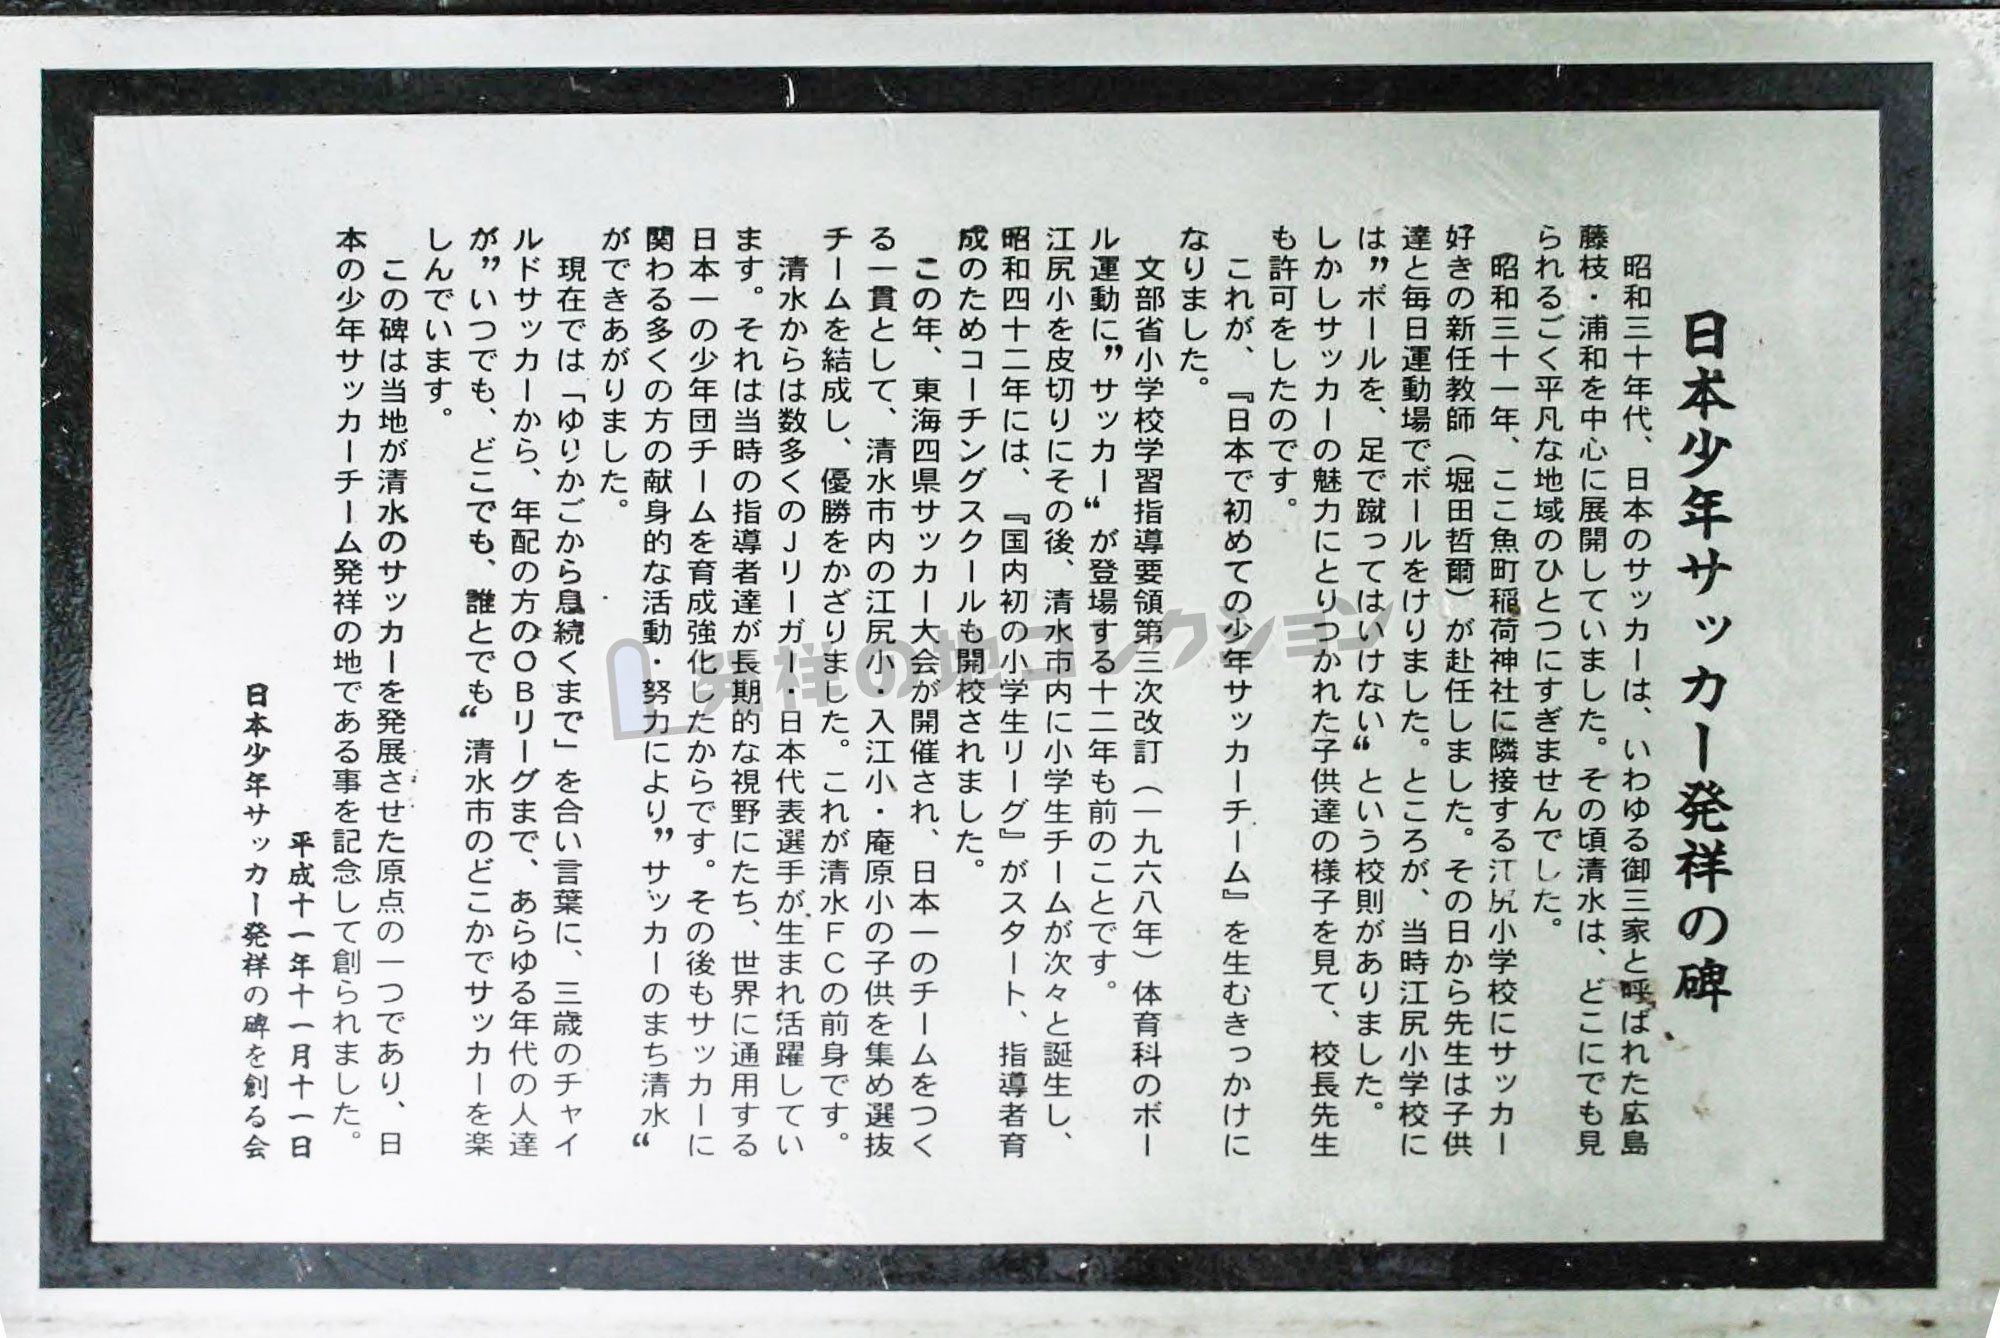 日本少年サッカー発祥の碑
昭和三十年代、日本のサッカーは、いわゆる御三家と呼ばれた広島
藤枝・浦和を中心に展開していました。その頃清水は、どこにでも見
られるごく平凡な地域のひとつにすぎませんでした。
昭和三十一年、ここ魚町稲荷神社に隣接する江尻小学校にサッカー
好きの新任教師（堀田哲爾）が赴任しました。その日から先生は子供
達と毎日運動場でボールをけりました。ところが、当時江尻小学校に
は”ボールを、足で蹴ってはいけない“という校則がありました。
しかしサッカーの魅力にとりつかれた子供達の様子を見て、校長先生
も許可をしたのです。
これが、『日本で初めての少年サッカーチーム』を生むきっかけに
なりました。
文部省小学校学習指導要領第三次改訂（一九六八年）体育科のボー
ル運動に”サッカー“が登場する十二年も前のことです。
江尻小を皮切りにその後、清水市内に小学生チームが次々と誕生し、
昭和四十二年には、『国内初の小学生リーグ』がスタート、指導者育
成のためコーチングスクールも開校されました。
この年、東海四県サッカー大会が開催され、日本一のチームをつく
る一貫として、清水市内の江尻小・入江小・庵原小の子供を集め選抜
チームを結成し、優勝をかざりました。これが清水ＦＣの前身です。
清水からは数多くのＪリーガー・日本代表選手が生まれ活躍してい
ます。それは当時の指導者達が長期的な視野にたち、世界に通用する
日本一の少年団チームを育成強化したからです。その後もサッカーに
関わる多くの方の献身的な活動・努力により”サッカーのまち清水“
ができあがりました。
現在では「ゆりかごから息続くまで」を合い言葉に、三歳のチャイ
ルドサッカーから、年配の方のＯＢリーグまで、あらゆる年代の人達
が”いつでも、どこでも、誰とでも“清水市のどこかでサッカーを楽
しんでいます。
この碑は当地が清水のサッカーを発展させた原点の一つであり、日
本の少年サッカーチーム発祥の地である事を記念して創られました。
平成十一年十一月十一日
日本少年サッカー発祥の碑を創る会
発祥の地コレクション